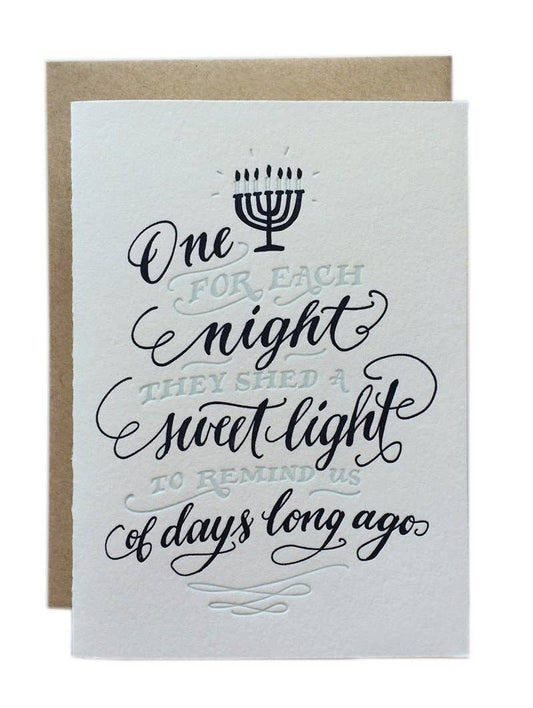 One
FOR EACH
night
THEY SHED A
sweet light
TO REMIND US
of days long ago